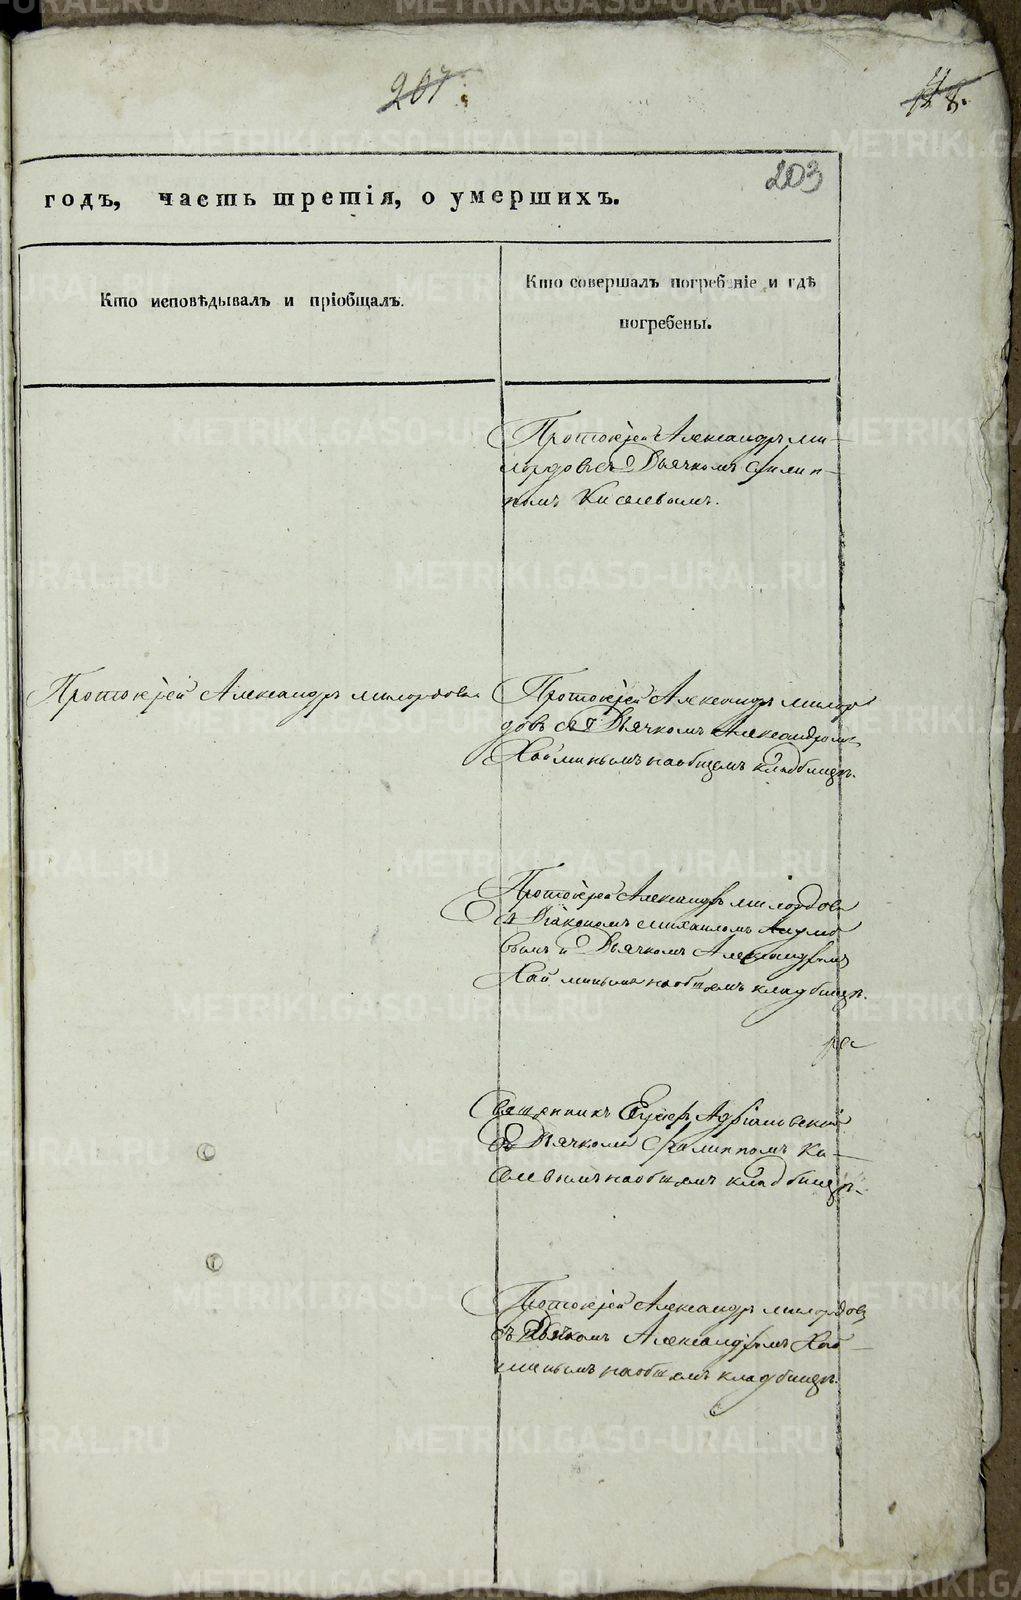 207.
203
годъ, часть третія, о умершихъ.
Кто исповѣдывалъ и пріобщалъ.
Кто совершалъ погребеніе и гдѣ
погребены.
Протоіерей Александръ Ми-
лордовъ съ Дьячкомъ Филип-
помъ Киселевымъ.
Протоіерей Александръ Милордовъ
Протоіерей Александръ Милор
довъ съ Дьячкомъ Александромъ
на общемъ кладбищѣ.
Протоіерей Александръ Милордовъ
съ Діакономъ Михаиломъ
вымъ и Дьячкомъ Александромъ
на общемъ кладбищѣ.
Священникъ Адріановскій
съ Дьячкомъ Филиппомъ Ки-
селевымъ на общемъ кладбищѣ.
Протоіерей Александръ Милордовъ
съ Дьячкомъ Александромъ
на общемъ кладбищѣ.
METRIKI.GASO-URAL.RU